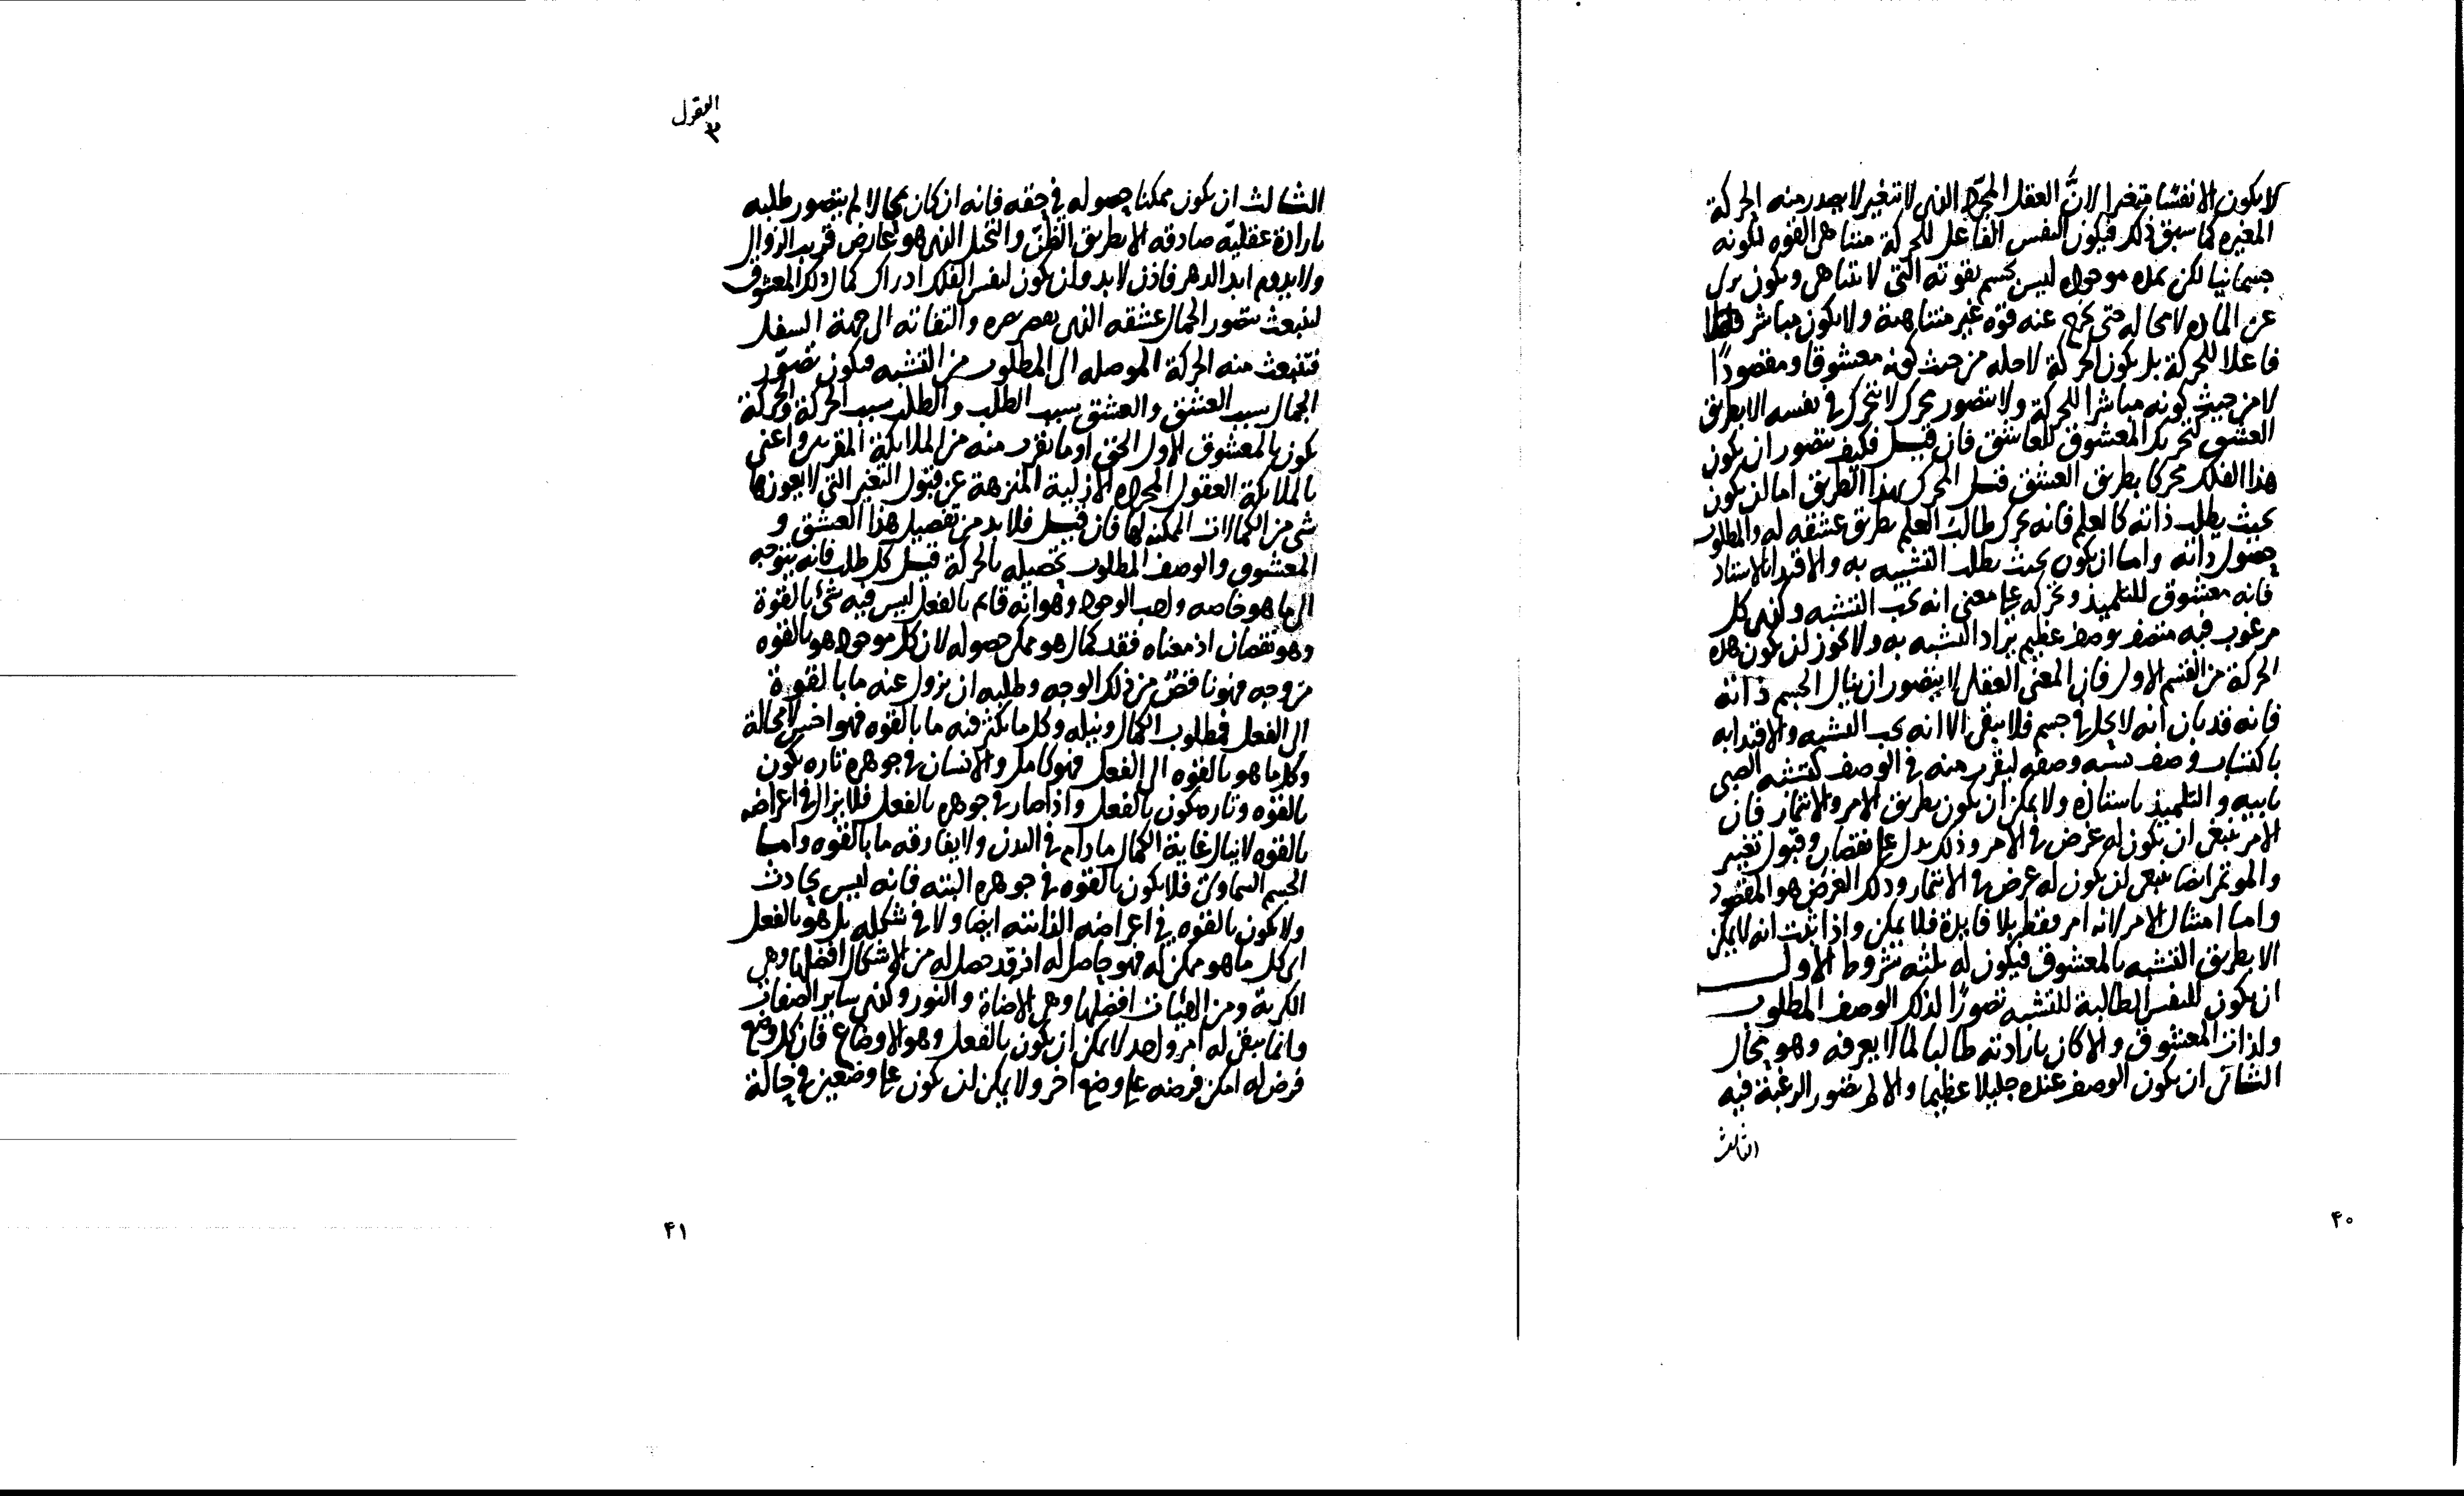 لا يكون الا نفسا متغيرا لان العقل المجرد الذى لا تتغير لا يصدر منه الحركة
المغيره كما سبق ذلك فيكون النفس الفاعل للحركة متناهى القوه لكونه
جسمانيا لكن يمده موجود ليس بجسم بقوته التى لا تتناهى ويكون برى
عن الماده لا محاله حتى يخرج عنه قوه غير متناهية ولا يكون مباشر
فاعلا للحركة بل يكون الحركة لاجله من حيث كونه معشوقا ومقصودا
لا من حيث كونه مباشرا للحركة ولا يتصور محرك لا يتحرك فى نفسه الا بطريق
العشق كتحريك المعشوق للعاشق فان قيل فكيف يتصور ان يكون
هذا الفلك محركا بطريق العشق قيل المحرك بهذا الطريق اما لن يكون
بحيث يطلب ذاته كالعلم فانه يحرك طالب العلم بطريق عشقه له والمطلوب
حصول ذاته واما ان يكون بحيث يطلب التشبيه به والاقتدا كالاستاد
فانه معشوق للتلميذ ويحركه على معنى انه يحب التشبه وكذى كل
مرغوب فيه متصف بوصف عظيم يراد التشبه به ولا يجوز لن يكون هذه
الحركة من القسم الاول فان المعنى العقلى لا يتصور ان ينال الجسم ذاته
فانه قد بان انه لا يحل فى جسم فلا يبقى الا انه يحب التشبه والاقتدا به
باكتساب وصف يشبه وصفه ليقرب منه فى الوصف كتشبه الصبى
بابيه والتلميذ باستاذه ولا يمكن ان يكون بطريق الامر والائتمار فان
الامر ينبغى ان يكون له غرض فى الامر وذلك يدل على نقصان وقبول تغير
والموتمر ايضا ينبغى لن يكون له غرض فى الائتمار وذلك الغرض هو المقصود
واما امتثال الامر لانه امر فقط بلا فايدة فلا يمكن واذا ثبت انه لا يمكن
الا بطريق التشبه بالمعشوق فيكون له ثلثه شروط الاول
ان يكون للنفس الطالبة للتشبه تصورا لذلك الوصف المطلوب
ولذات المعشوق والا كان بارادته طالبا لما لا يعرفه وهو محال
الثانى ان يكون الوصف عنده جليلا عظيما والا لم يتصور الرغبة فيه
الثالث
٤٠
العقول
٣
الثالث ان يكون ممكنا حصوله فى حقه فانه ان كان محالا لم يتصور طلبه
بارادة عقليه صادقه الا بطريق الظن والتخيل الذى هو عارض قريب الزوال
ولا يدوم ابد الدهر فاذن لا بد ولن يكون لنفس الفلك ادراك كمال ذلك المعشوق
لينبعث بتصور الجمال عشقه الذى والتفاته الى جهة السفل
فتنبعث منه الحركة الموصله الى المطلوب من التشبه فيكون تصور
الجمال سبب العشق والعشق سبب الطلب والطلب سبب الحركة والحركة
يكون بالمعشوق الاول الحق او ما يقرب منه من الملايكة المقربين واعنى
بالملايكة العقول المجرده الازلية المنزهة عن قبول التغير التى لا يعوزها
شى من الكمالات الممكنه لها فان قيل فلا بد من تفصيل هذا العشق و
المعشوق والوصف المطلوب تحصيله بالحركة قيل كل طلب فانه يتوجه
الى ما هو خاصه واجب الوجود وهو انه قايم بالفعل ليس فيه شئ بالقوة
وهو نقصان اذ معناه فقد كمال هو ممكن حصوله لان كل موجود هو بالقوه
من وجه فهو ناقص من ذلك الوجه وطلبه ان يزول عنه ما بالقوة
الى الفعل فمطلوب الكمال ونيله وكل ما يكثر فيه ما بالقوه فهو اخس لا محالة
وكل ما هو بالقوه الى الفعل فهو كامل والانسان فى جوهره تاره يكون
بالقوه وتاره يكون بالفعل واذا صار فى جوهره بالفعل فلا يزال فى اعراضه
بالقوه لا ينال غاية الكمال ما دام فى البدن ولا يفارقه ما بالقوه واما
الجسم السماوى فلا يكون بالقوه فى جوهره البته فانه ليس بحادث
ولا يكون بالقوه فى اعراضه الذاتيه ايضا ولا فى شكله بل هو بالفعل
اى كل ما هو ممكن له فهو حاصل له اذ قد حصل له من الاشكال افضلها وهى
الكرية ومن الهيات افضلها وهى الاضاة والنور وكذى ساير الصفات
وانما يبقى له امر واحد لا يمكن ان يكون بالفعل وهو الاوضاع فان كل وضع
فرض له امكن فرضه على وضع اخر ولا يمكن لن يكون على وضعين فى حالة
٤١